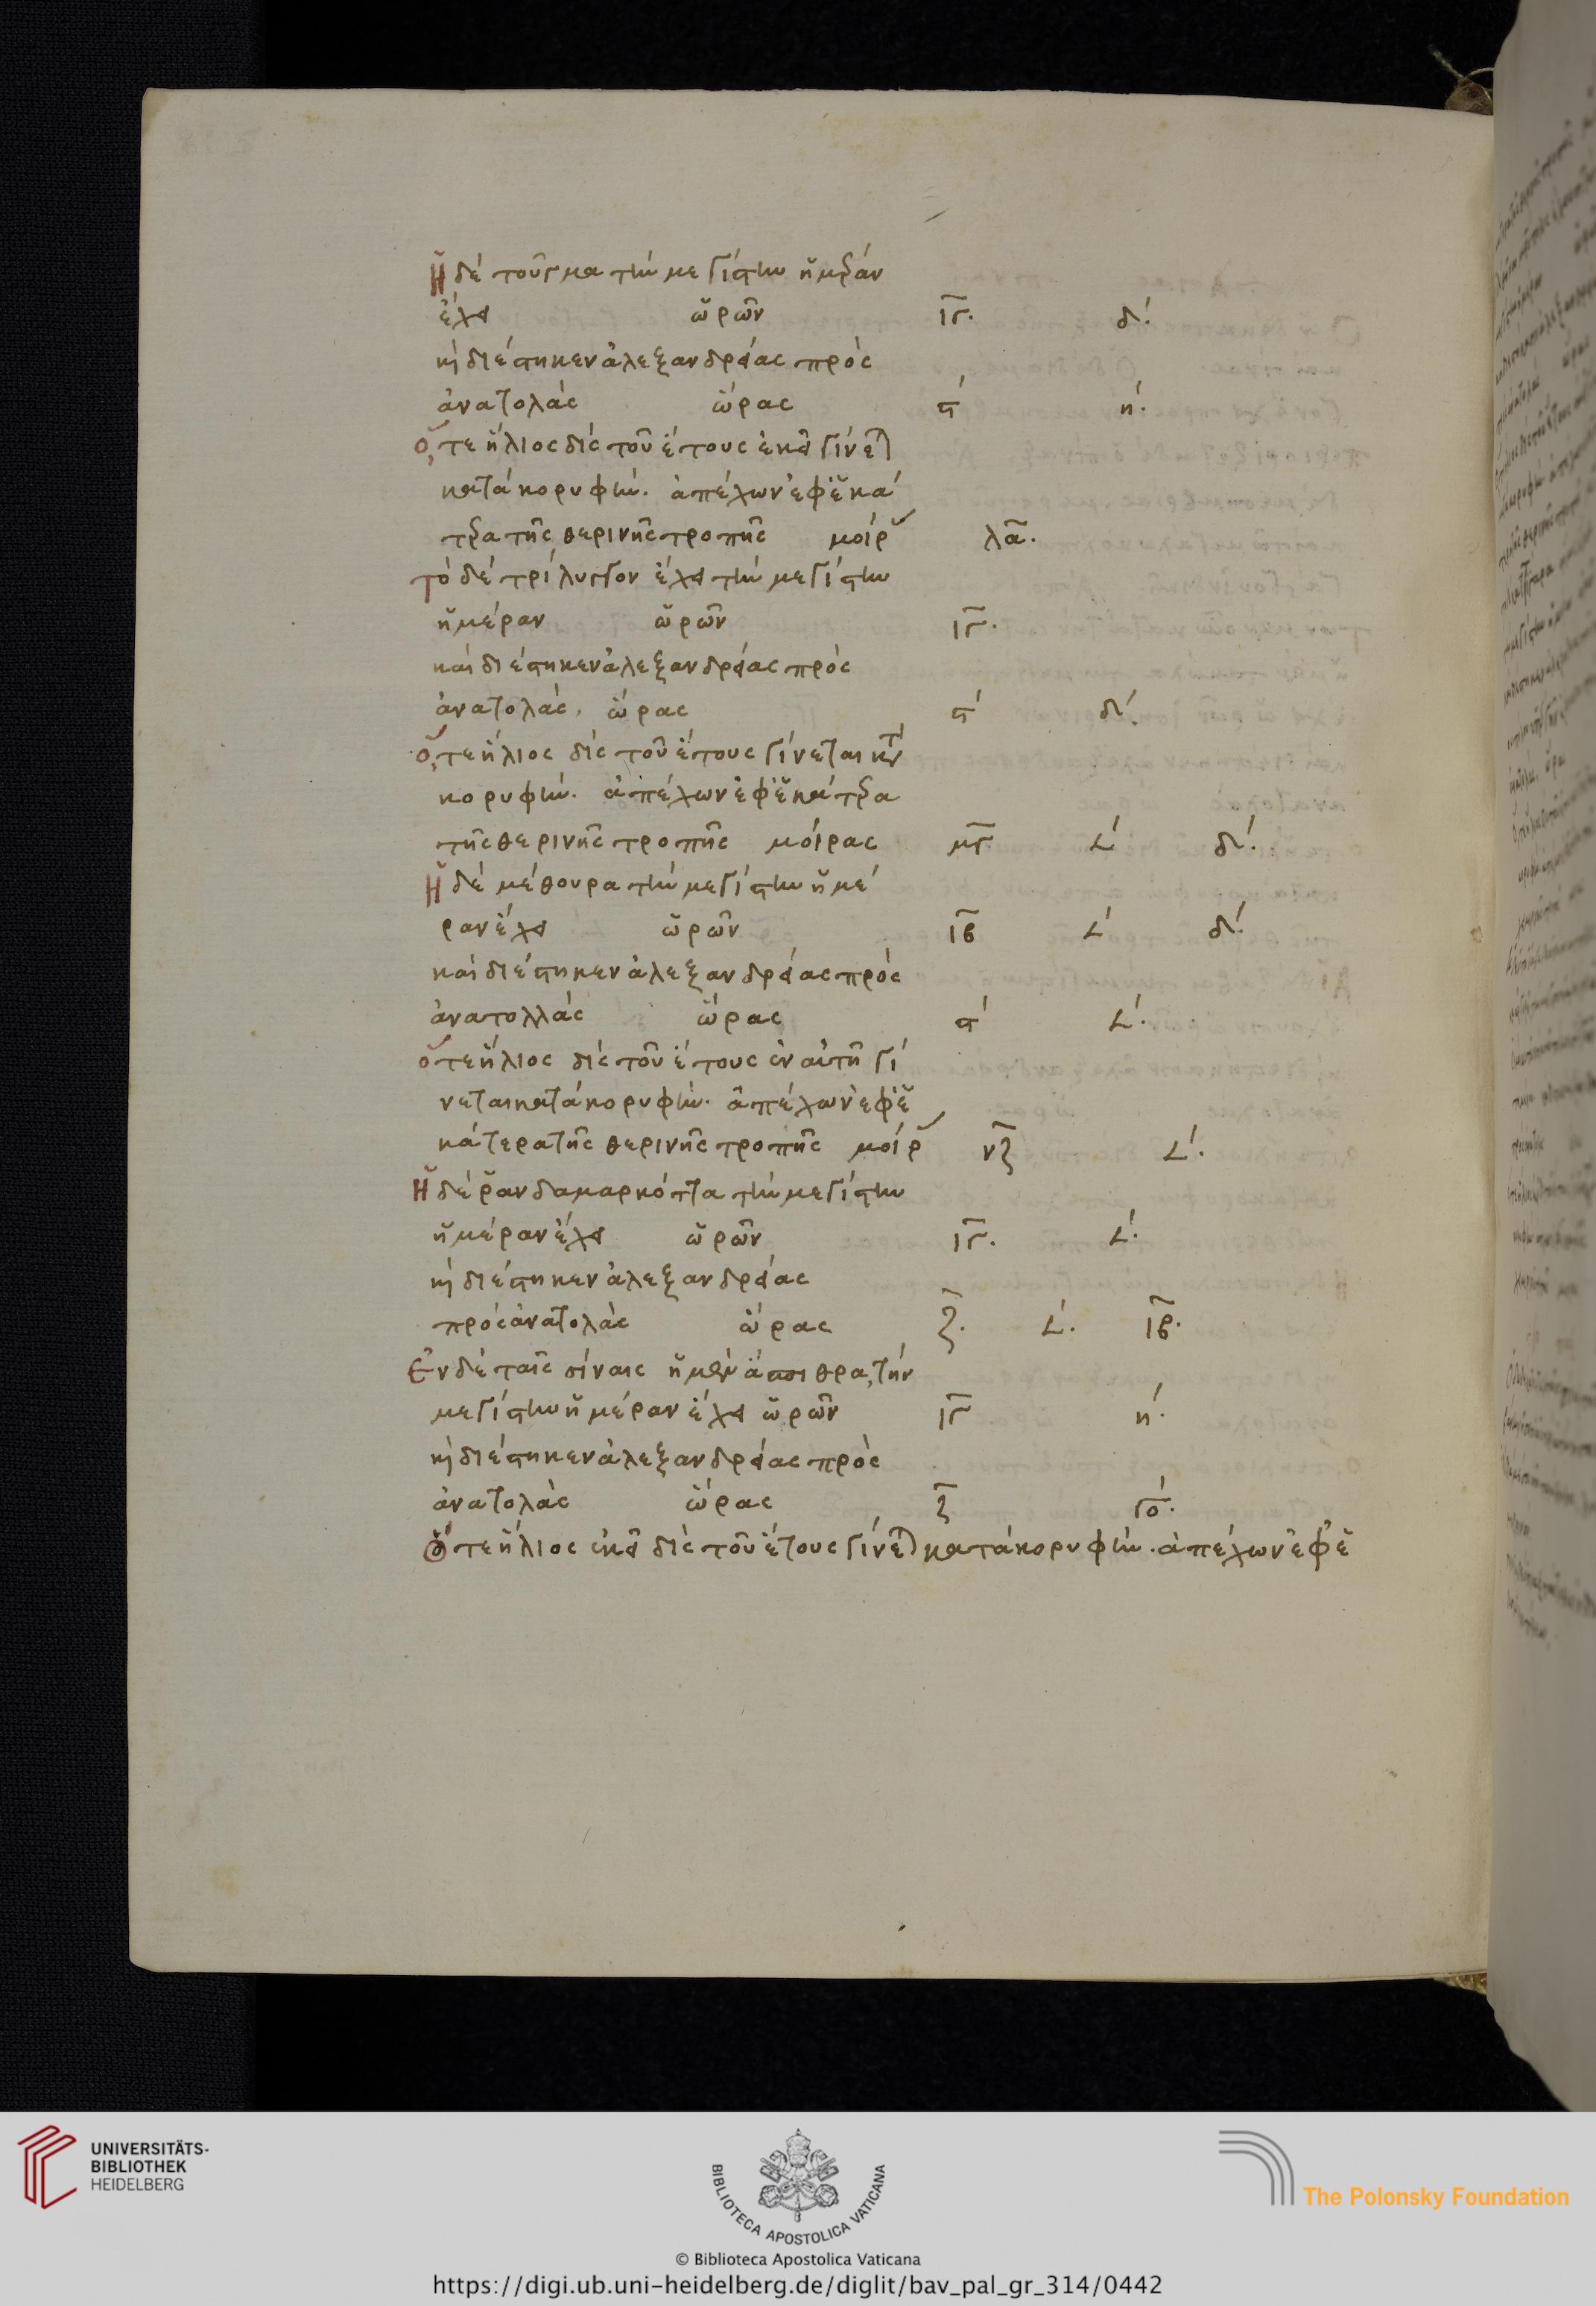 Ἡ δὲ τοῦγμα τὴν μεγίστην ἡμέραν
ἔχει ὡρῶν ιγ. δ΄.
καὶ διέστηκεν ἀλεξανδρείας πρὸς
ἀνατολὰς ὥρας ϛ΄ η΄.
ὅ, τε ἥλιος δὶς τοῦ ἔτους ἐκεῖ γίνεται
κατὰ κορυφήν. ἀπέχων ἐφ' ἑκά
τερα τῆς θερινῆς τροπῆς μοίρας λα.
τὸ δὲ τρίλυγγον ἔχει τὴν μεγίστην
ἡμέραν ὡρῶν ιγ.
καὶ διέστηκεν ἀλεξανδρείας πρὸς
ἀνατολὰς, ὥρας ϛ΄ δ΄.
ὅ, τε ἥλιος δὶς τοῦ ἔτους γίνεται κατὰ
κορυφήν. ἀπέχων ἐφ' ἑκάτερα
τῆς θερινῆς τροπῆς μοίρας μγ ∠΄ δ΄.
Ἡ δὲ μέθουρα τὴν μεγίστην ἡμέ
ραν ἔχει ὡρῶν ιβ ∠΄ δ΄.
καὶ διέστηκεν ἀλεξανδρείας πρὸς
ἀνατολλὰς ὥρας ϛ΄ ∠΄.
ὅ τε ἥλιος δὶς τοῦ ἔτους ἐν αὐτῆ γί
νεται κατὰ κορυφήν. ἀπέχων ἐφ' ἑ
κάτερα τῆς θερινῆς τροπῆς μοίρας νζ ∠΄.
Ἡ δὲ ῥανδαμαρκόττα τὴν μεγίστην
ἡμέραν ἔχει ὡρῶν ιγ. ∠΄.
καὶ διέστηκεν ἀλεξανδρείας
πρὸς ἀνατολὰς ὥρας ζ. ∠΄. ιβ.
Ἐν δὲ ταῖς σίναις ἡ μὲν ἄσπιθρα, τὴν
μεγίστην ἡμέραν ἔχει ὡρῶν ιγ η΄.
καὶ διέστηκεν ἀλεξανδρείας πρὸς
ἀνατολὰς ὥρας ζ γο΄.
Ὅ τε ἥλιος ἐκεῖ δὶς τοῦ ἔτους γίνεται κατὰ κορυφήν. ἀπέχων ἐφ' ἑ
UNIVERSITÄTS-
BIBLIOTHEK
HEIDELBERG
BIBLIOTECA APOSTOLICA VATICANA
The Polonsky Foundation
© Biblioteca Apostolica Vaticana
https://digi.ub.uni-heidelberg.de/diglit/bav_pal_gr_314/0442